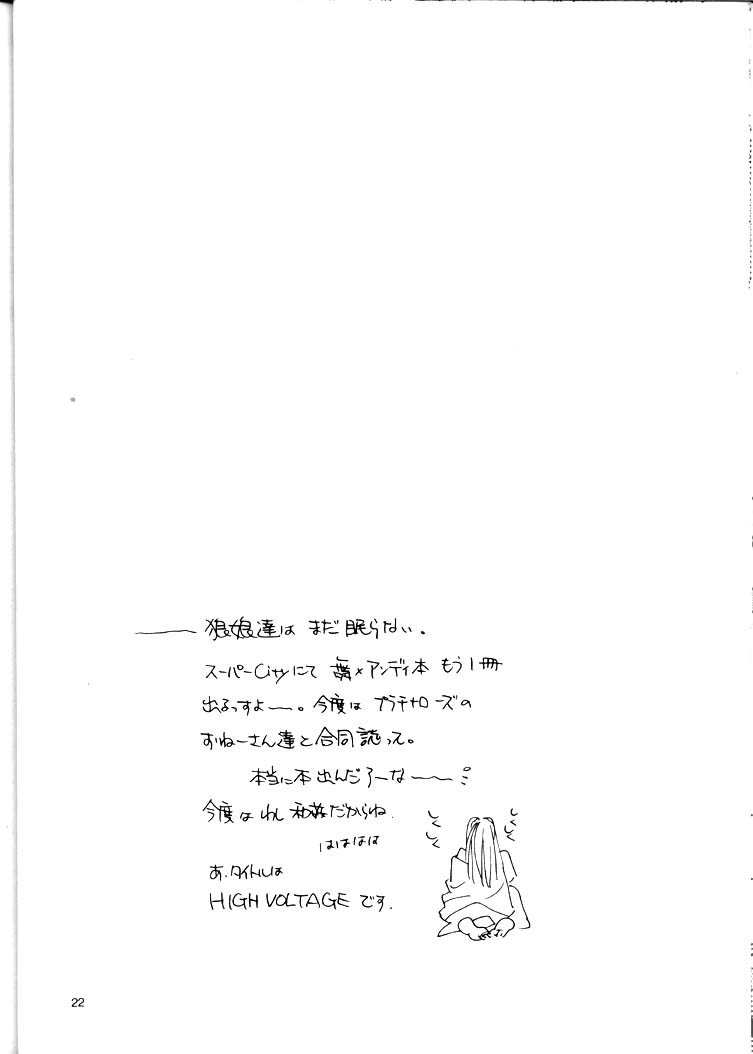 —— 狼娘達は まだ眠らない。
スーパーCityにて ×アンディ本 もう1冊
出るっすよー。今度は プラチナローズの
おねーさん達と合同誌って。
本当に本出んだろーな——
今度は わし だからね.
はははは
あ.タイトルは
HIGH VOLTAGE です.
しくしく
しくしく
22